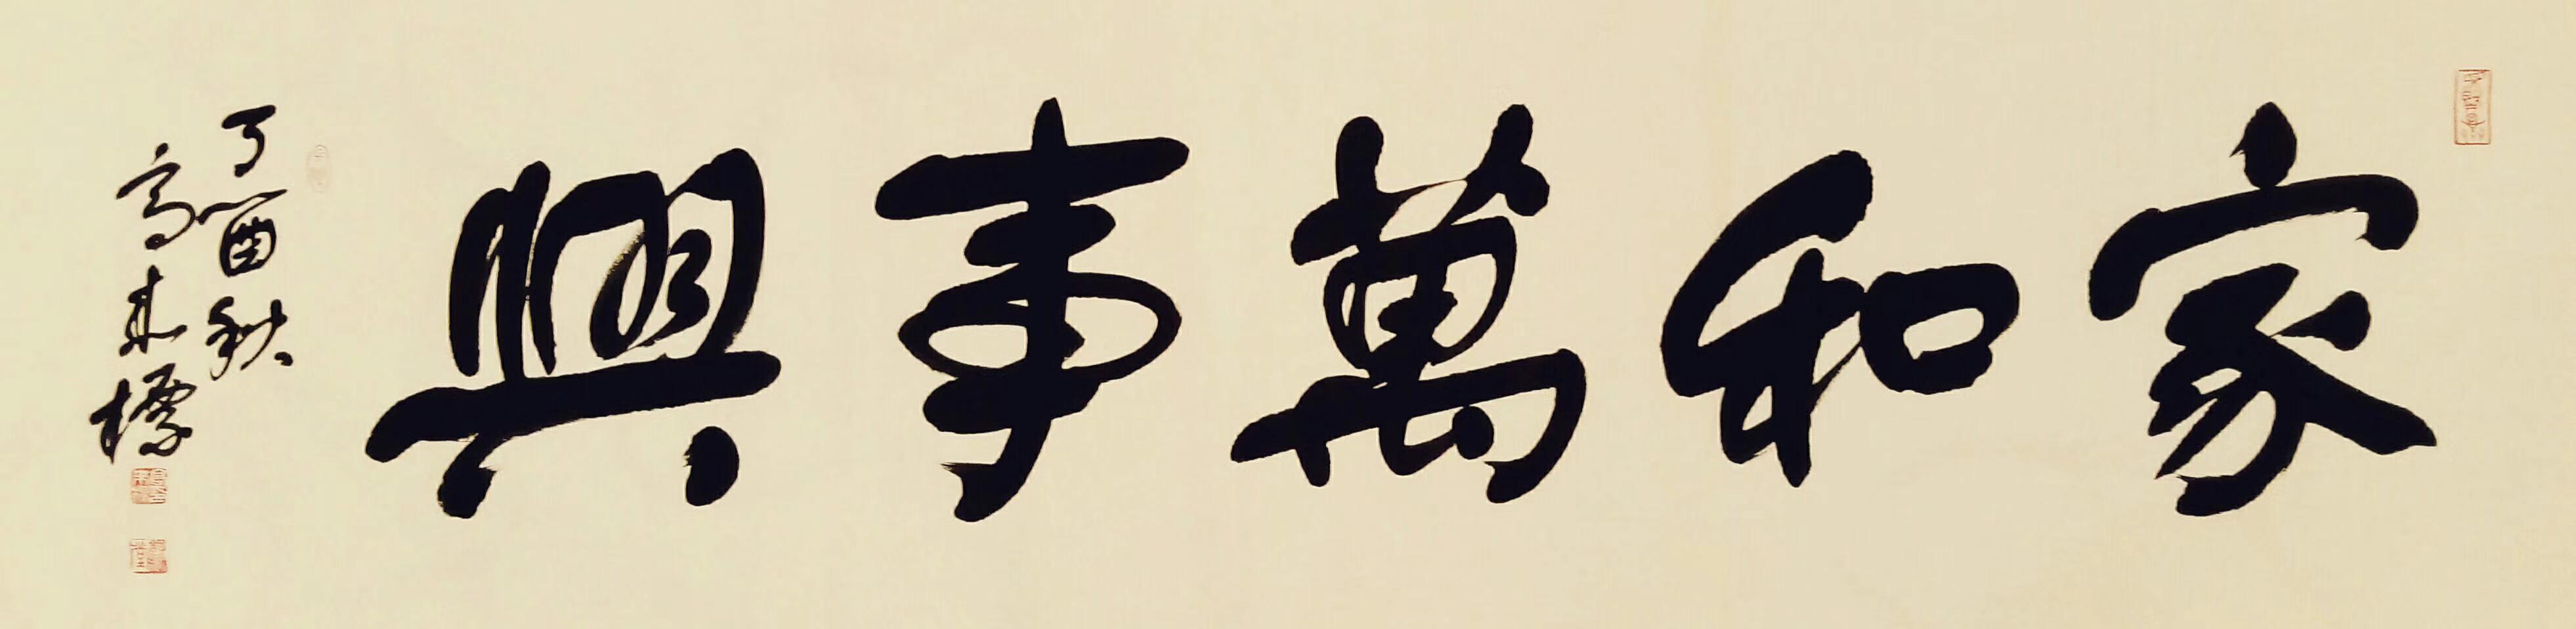 家和萬事興
丁酉秋
高來標